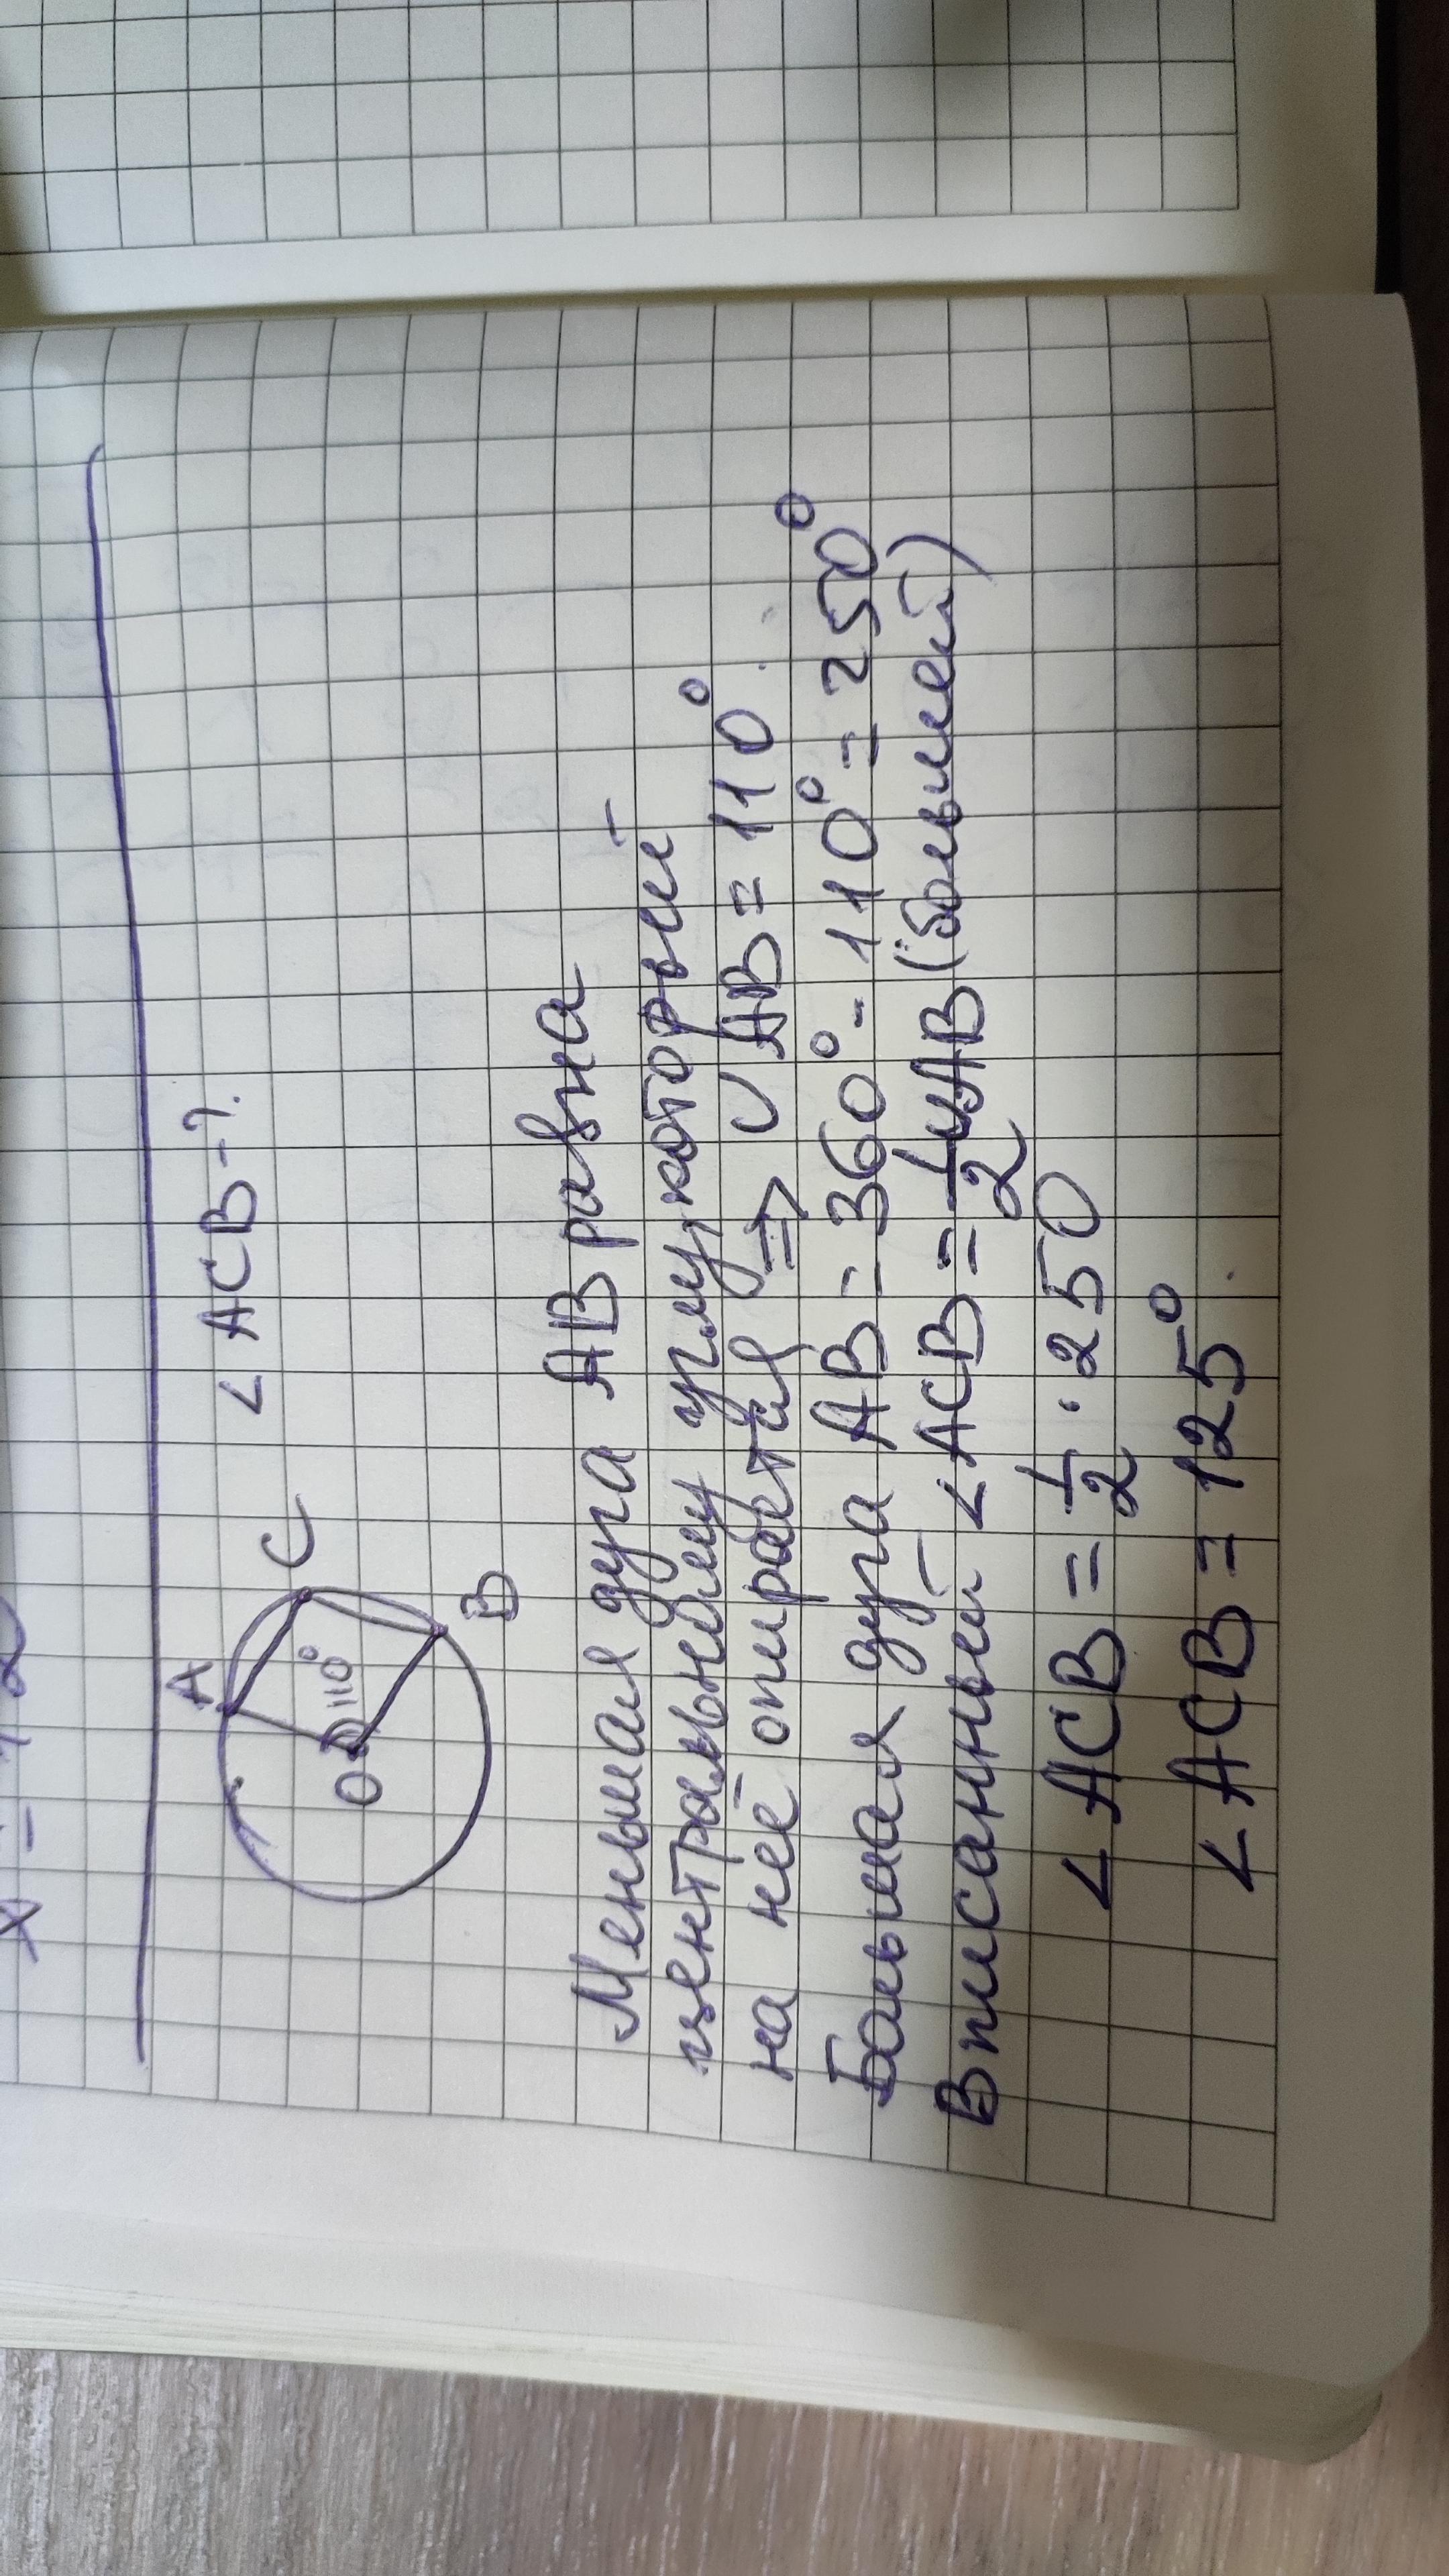 ∠ ACB - ?
A
C
110°
O
B
Меньшая дуга АВ равна
центральному углу, который
на неё опирается ⇒ ∪ АВ = 110°
Большая дуга АВ - 360° - 110° = 250°
Вписанный ∠ACB = 1/2 ∪AB (большей)
∠ ACB = 1/2 · 250
∠ ACB = 125°.